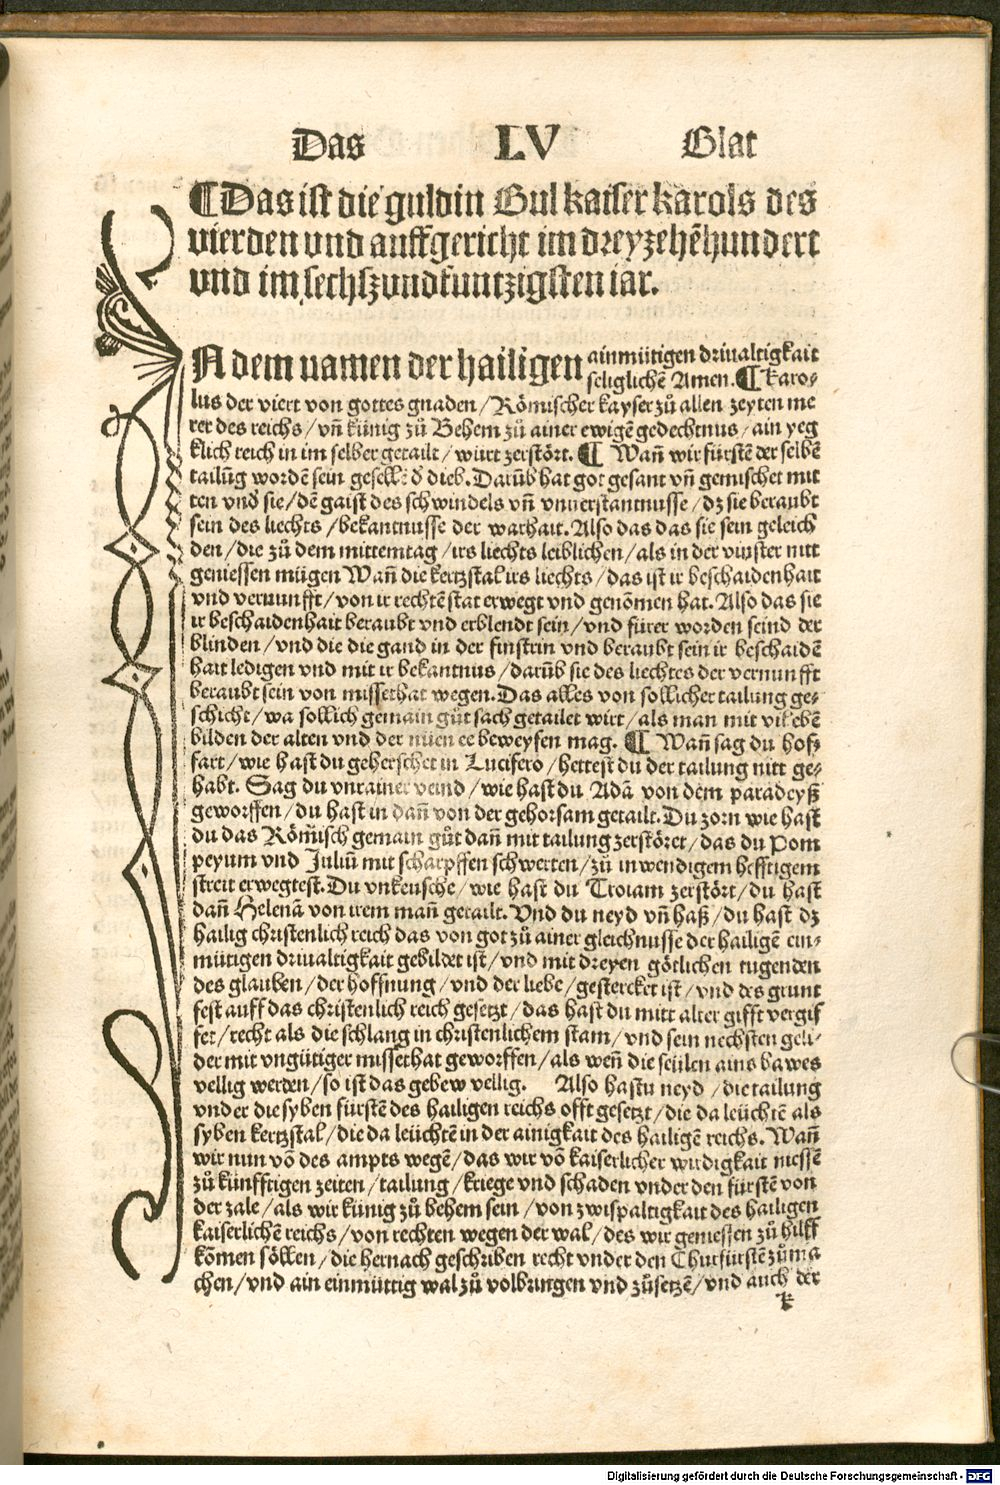 Das LV Glat
¶ Das ist die guldin Bul kaiser karols des
vierden vnd auffgericht im dreyzehēhundert
vnd im sechszvndfuntzigsten iar.
IN dem namen der hailigen ainmütigen driualtigkait
seliglichē Amen. ¶ Karo-
lus der viert von gottes gnaden / Römischer kayser zů allen zeyten me
rer des reichs / vn̄ künig zů Behem zů ainer ewigē gedechtnus / ain yeg
klich reich in im selber getailt / würt zerstört. ¶ Wan̄ wir fürstē der selbē
tailūg wordē sein gesellē d dieb. Darūb hat got gesant vn̄ gemischet mit
ten vnd sie / dē gaist des schwindels vn̄ vnuerstantnusse / dz sie beraubt
sein des liechts / bekantnusse der warhait. Also das das sie sein geleich
den / die zů dem mittemtag / irs liechts leiblichen / als in der vinster nitt
geniessen mügen Wan̄ die kertzstal irs liechts / das ist ir beschaidenhait
vnd vernunfft / von ir rechtē stat erwegt vnd genōmen hat. Also das sie
ir beschaidenhait beraubt vnd erblendt sein / vnd fürer worden seind der
blinden / vnd die die gand in der finstrin vnd beraubt sein ir beschaidē
hait ledigen vnd mit ir bekantnus / darūb sie des liechtes der vernunfft
beraubt sein von missethat wegen. Das alles von sollicher tailung ge-
schicht / wa sollich gemain gůt sach getailet wirt / als man mit vil ebē
bilden der alten vnd der nüen ee beweysen mag. ¶ Wan̄ sag du hof-
fart / wie hast du geherschet in Lucifero / hettest du der tailung nitt ge-
habt. Sag du vnrainer veind / wie hast du Adā von dem paradeyß
geworffen / du hast in dan̄ von der gehorsam getailt. Du zorn wie hast
du das Römisch gemain gůt dan̄ mit tailung zerstöret / das du Pom
peyum vnd Juliū mit scharpffen schwerten / zů inwendigem hefftigem
streit erwegtest. Du vnkeusche / wie hast du Troiam zerstört / du hast
dan̄ Helenā von irem man̄ getailt. Vnd du neyd vn̄ haß / du hast dz
hailig christenlich reich das von got zů ainer gleichnusse der hailigē ein-
mütigen driualtigkait gebildet ist / vnd mit dreyen götlichen tugenden
des glauben / der hoffnung / vnd der liebe / gestercket ist / vnd des grunt
fest auff das christenlich reich gesetzt / das hast du mitt alter gifft vergif
fet / recht als die schlang in christenlichem stam / vnd sein nechsten geli-
der mit vngütiger missethat geworffen / als wen̄ die seülen ains bawes
vellig werden / so ist das gebew vellig. Also hastu neyd / die tailung
vnder die syben fürstē des hailigen reichs offt gesetzt / die da leüchtē als
syben kertzstal / die da leüchtē in der ainigkait des hailigē reichs. Wan̄
wir nun vō des ampts wegē / das wir vō kaiserlicher wirdigkait niessē
zů künfftigen zeiten / tailung / kriege vnd schaden vnder den fürstē von
der zale / als wir künig zů behem sein / von zwispaltigkait des hailigen
kaiserlichē reichs / von rechten wegen der wal / des wir geniessen zů hilff
kōmen söllen / die hernach geschriben recht vnder den Churfürstē zů ma
chen / vnd ain einmüttig wal zů volbringen vnd zůsetzē / vnd auch der
k
Digitalisierung gefördert durch die Deutsche Forschungsgemeinschaft - DFG